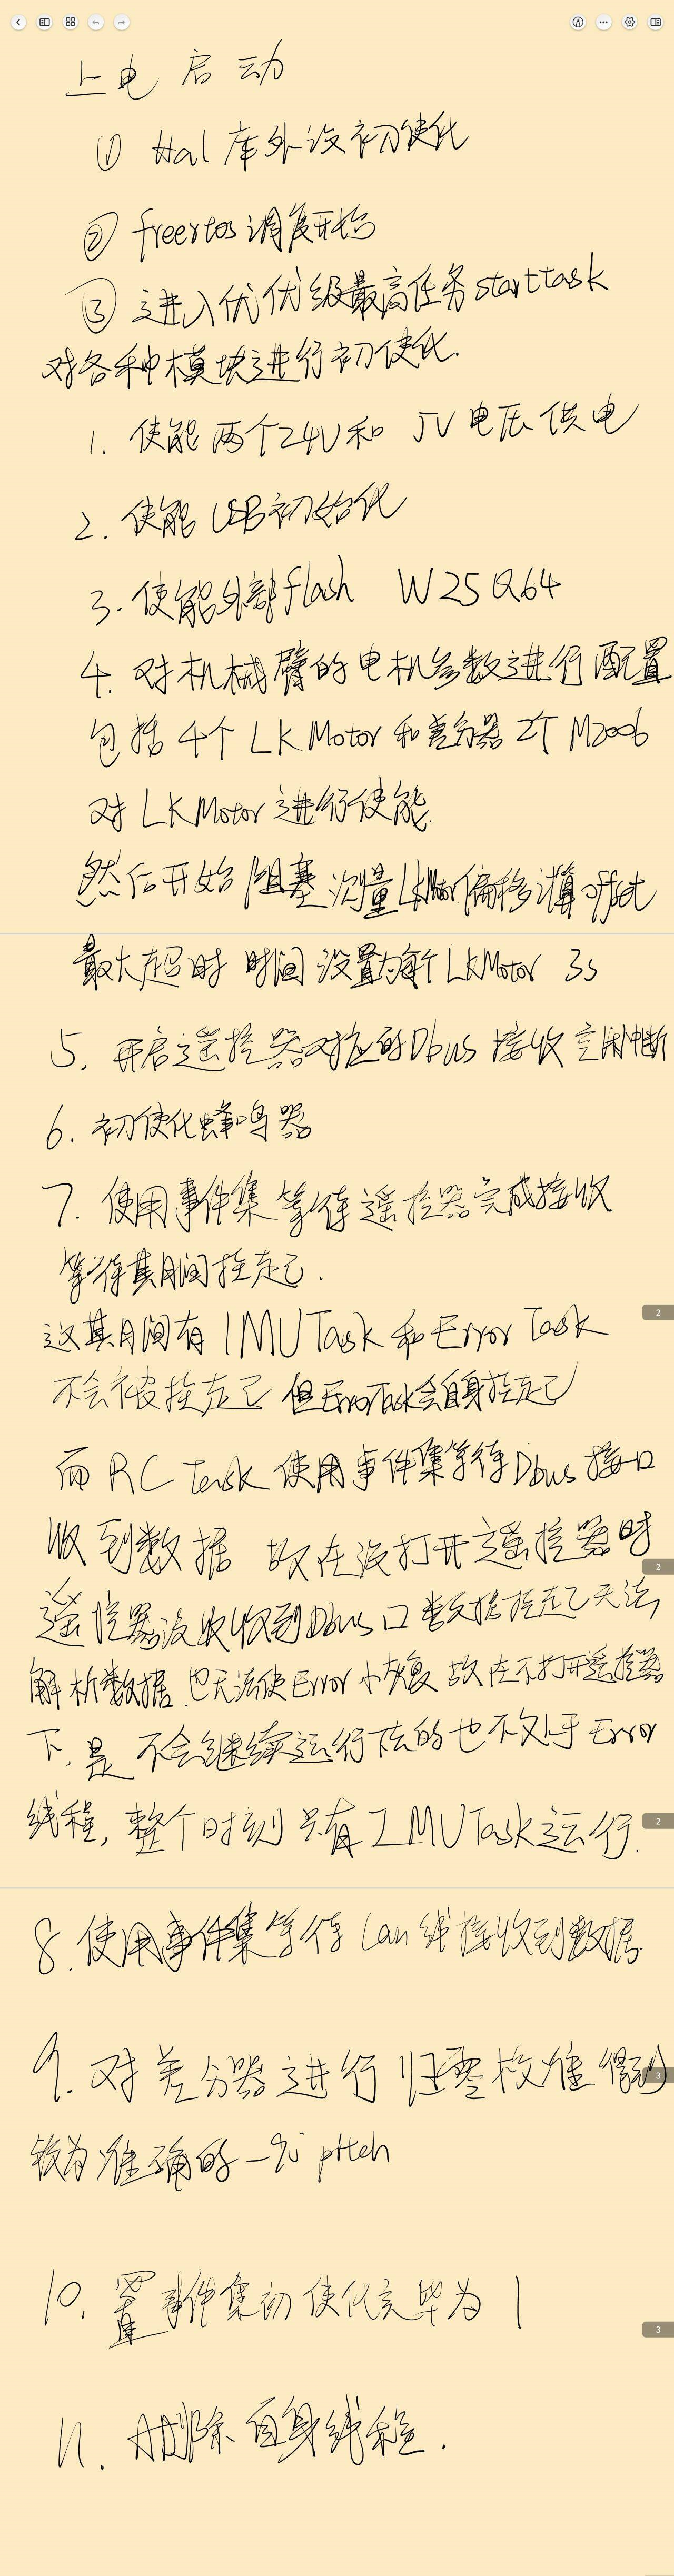 上电启动
① Hal库外设初使化
② freertos调度开始
③ 进入优优级最高任务starttask
对各种模块进行初使化.
1. 使能两个24V和 5V电压供电
2. 使能USB初始化
3. 使能外部flash W25Q64
4. 对机械臂的电机参数进行配置
包括4个LKMotor和差分器2个M2006
对LKMotor进行使能.
然后开始阻塞测量LKMotor偏移计算offset
最大超时时间设置为每个LKMotor 3s
5. 开启遥控器对应的Dbus接收空闲中断
6. 初使化蜂鸣器
7. 使用事件集等待遥控器完成接收
等待其期间挂起.
这其期间有IMUTask和Error Task
不会被挂起 但ErrorTask会自身挂起
而RC Task使用事件集等待Dbus接口
收到数据 故在没打开遥控器时
遥控器没收收到Dbus口数据挂起无法
解析数据.也无法使Error 恢复 故在不打开遥控器
下.是不会继续运行下去的也不处于Error
线程,整个时刻只有IMUTask运行.
8. 使用事件集等待Can线接收到数据
9. 对差分器进行归零校准得到
较为准确的-90 pitch
10. 置事件集初使化完毕为1
11. 删除自身线程.
2
2
2
3
3